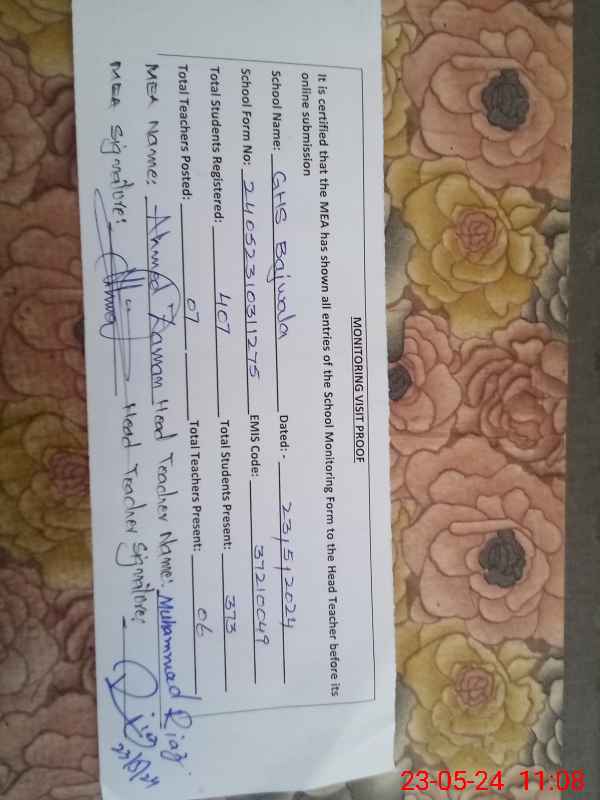 MONITORING VISIT PROOF
It is certified that the MEA has shown all entries of the School Monitoring Form to the Head Teacher before its
online submission
School Name: GHS Bajwala Dated:- 23/5/2024
School Form No: 24052310311275 EMIS Code: 37210049
Total Students Registered: 407 Total Students Present: 373
Total Teachers Posted: 07 Total Teachers Present: 06
MEA Name: Ahmed Zaman Head Teacher Name: Muhammad Riaz
MEA Signature: Head Teacher Signature: Riaz
23/5/24
23-05-24 11:08